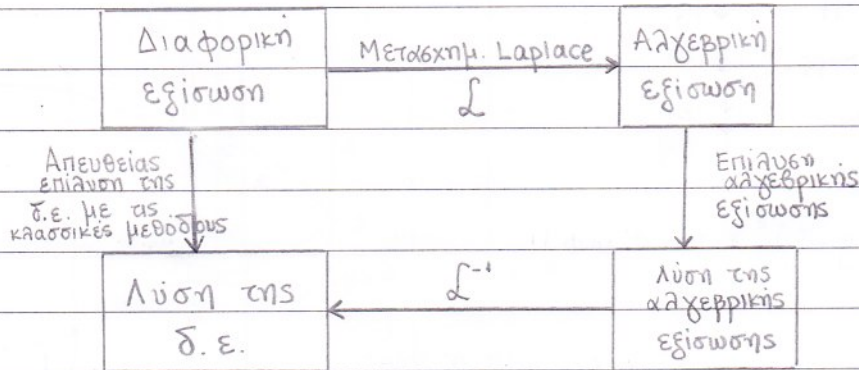 Διαφορική
εξίσωση
Μετασχημ. Laplace
ℒ
Αλγεβρική
εξίσωση
Απευθείας
επίλυση της
δ.ε. με τις
κλασσικές μεθόδους
Επίλυση
αλγεβρικής
εξίσωσης
Λύση της
δ. ε.
ℒ⁻¹
Λύση της
αλγεβρικής
εξίσωσης